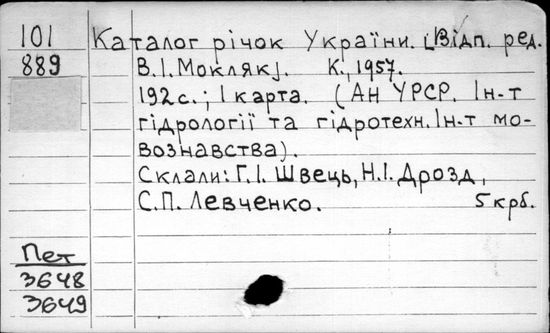 101
889
Каталог річок України. [Відп. ред.
В.І. Мокляк].    К., 1957.
192с.; 1 карта. (АН УРСР. Ін-т
гідрології та гідротехн. Ін-т мо-
вознавства).
Склали: Г.І. Швець, Н.І. Дрозд,
С.П. Левченко.    5 крб.
Пет
3648
3649